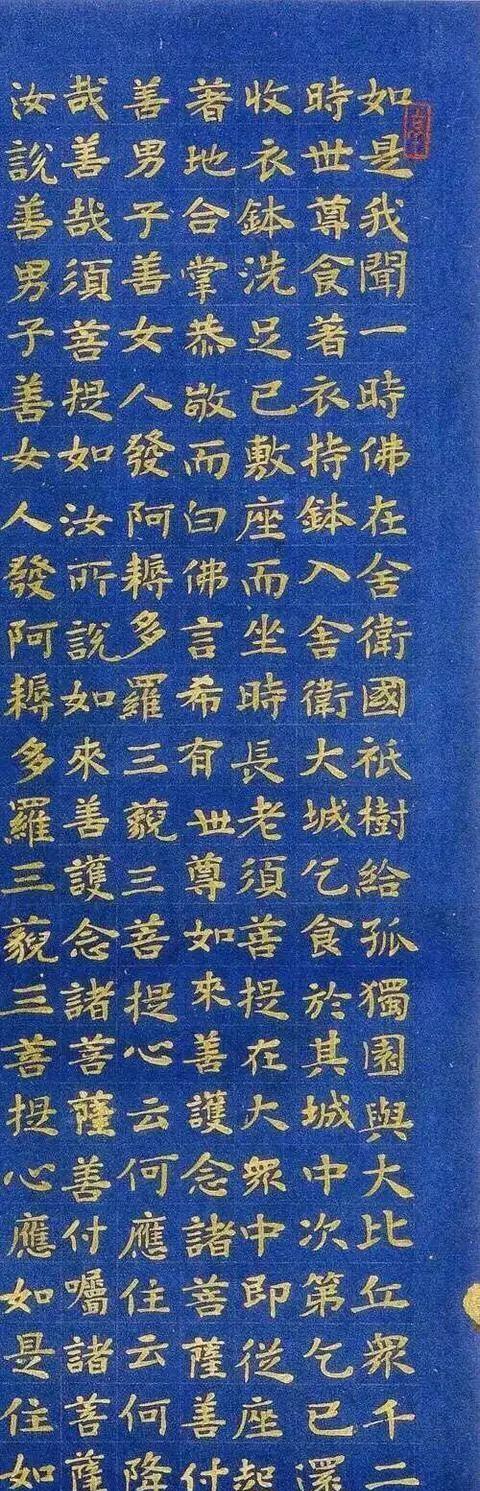 如是我聞一時佛在舍衛國祇樹給孤獨園與大比丘眾千二
時世尊食著衣持鉢入舍衛大城乞食於其城中次第乞已還
收衣鉢洗足已敷座而坐時長老須菩提在大眾中即從座起
著地合掌恭敬而白佛言希有世尊如來善護念諸菩薩善付
善男子善女人發阿耨多羅三藐三菩提心云何應住云何降
哉善哉須菩提如汝所說如來善護念諸菩薩善付囑諸菩薩
汝說善男子善女人發阿耨多羅三藐三菩提心應如是住如